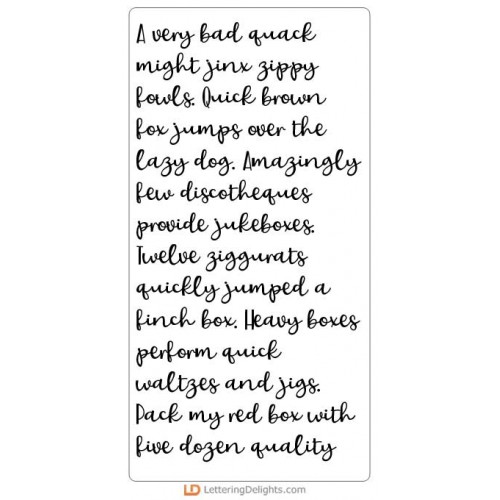 A very bad quack
might jinx zippy
fowls. Quick brown
fox jumps over the
lazy dog. Amazingly
few discotheques
provide jukeboxes.
Twelve ziggurats
quickly jumped a
finch box. Heavy boxes
perform quick
waltzes and jigs.
Pack my red box with
five dozen quality
LD LetteringDelights.com